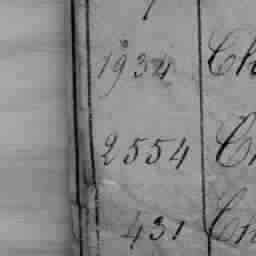 1934 Ch
2554 C
431 Ch